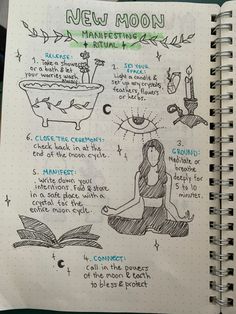 NEW MOON
MANIFESTING
RITUAL
1. RELEASE:
Take a shower
or a bath & let
your worries wash
away
2. SET YOUR
SPACE:
Light a candle &
set up any crystals,
feathers, flowers
or herbs.
3. GROUND:
Meditate or
breathe
deeply for
5 to 10
minutes.
4. CONNECT:
call in the powers
of the moon & earth
to bless & protect
5. MANIFEST:
Write down your
intentions. Fold & store
in a safe place with a
crystal for the
entire moon cycle.
6. CLOSE THE CEREMONY:
check back in at the
end of the moon cycle.